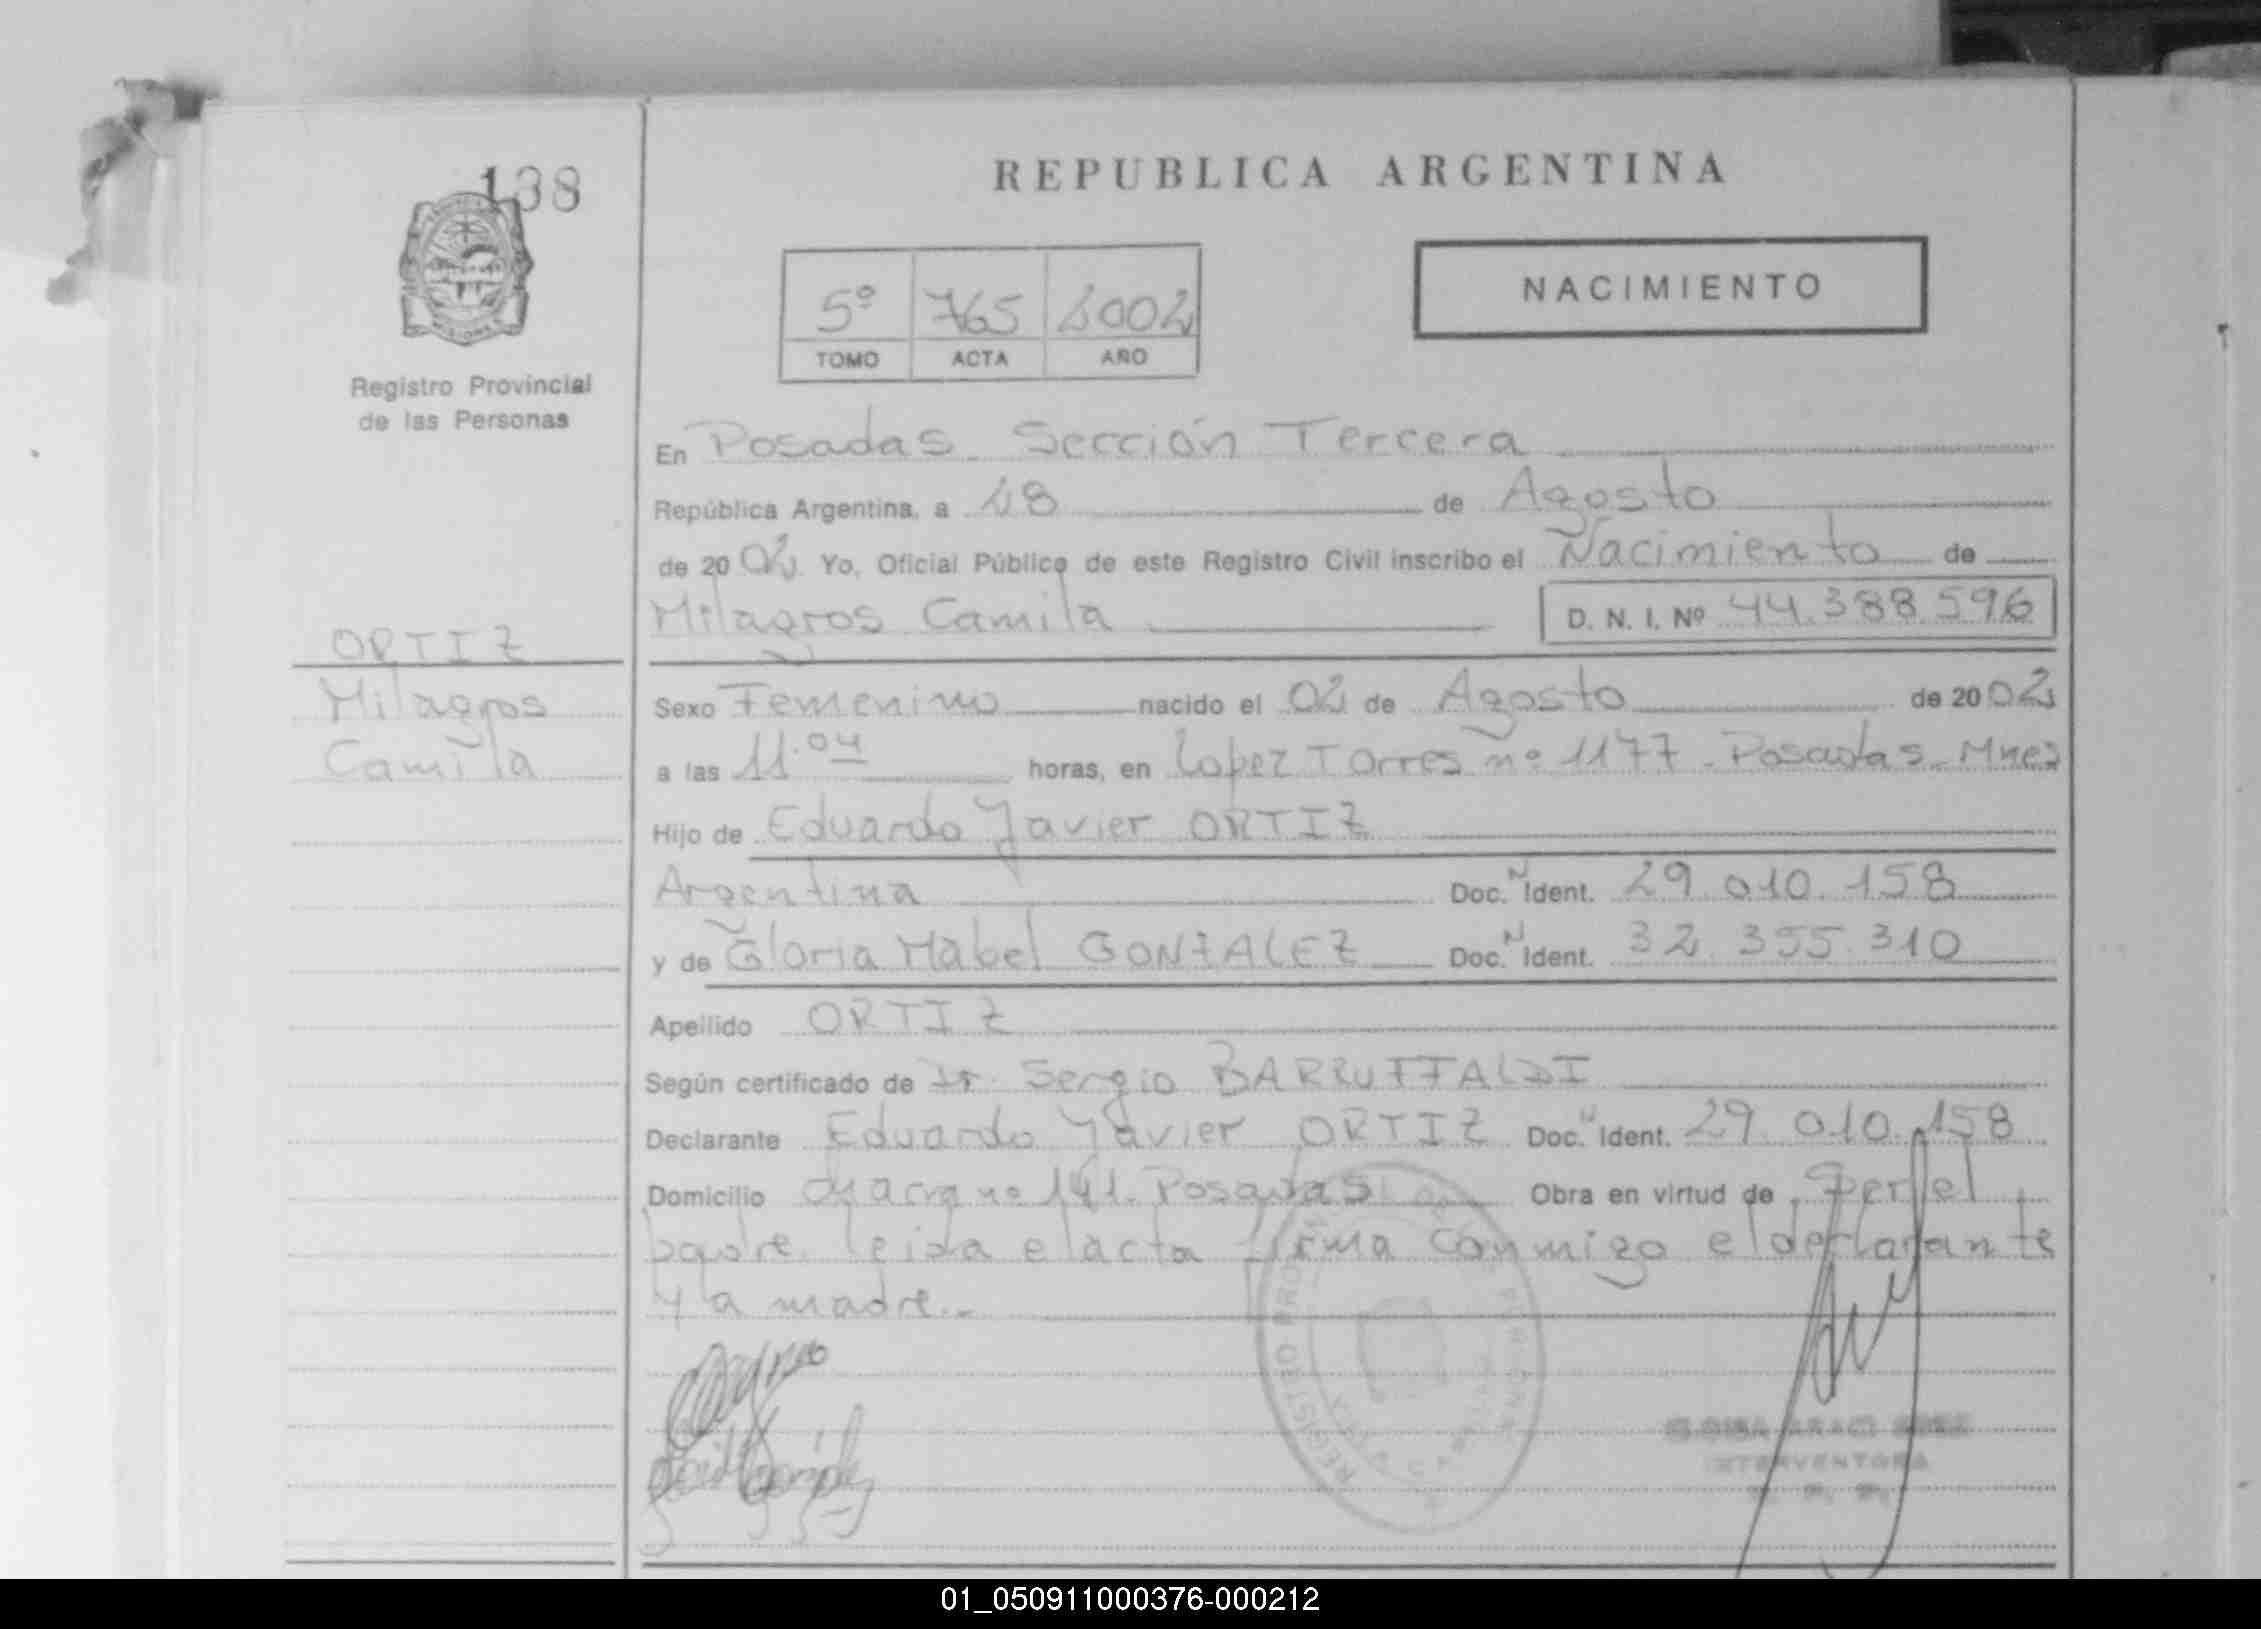 138
REPUBLICA ARGENTINA
NACIMIENTO
5º 765 2002
TOMO ACTA AÑO
Registro Provincial
de las Personas
En Posadas Sección Tercera
República Argentina, a 28 de Agosto
de 2002 Yo, Oficial Público de este Registro Civil inscribo el Nacimiento de
Milagros Camila D. N. I. Nº 44.388.596
ORTIZ
Milagros
Camila
Sexo Femenino nacido el 02 de Agosto de 2002
a las 11.04 horas, en Lopez Torres nº 1177 - Posadas - Mnes
Hijo de Eduardo Javier ORTIZ
Argentina Doc. N Ident. 29.010.158
y de Gloria Mabel GONZALEZ Doc. N Ident. 32.355.310
Apellido ORTIZ
Según certificado de Dr. Sergio BARRUFFALDI
Declarante Eduardo Javier ORTIZ Doc. N Ident. 29.010.158
Domicilio Chacra nº 141. Posadas Obra en virtud de ser el
padre. leida el acta firma conmigo el declarante
y la madre.-
REGISTRO PROVINCIAL DE LAS PERSONAS
INTERVENTORA
R. P. P.
01_050911000376-000212